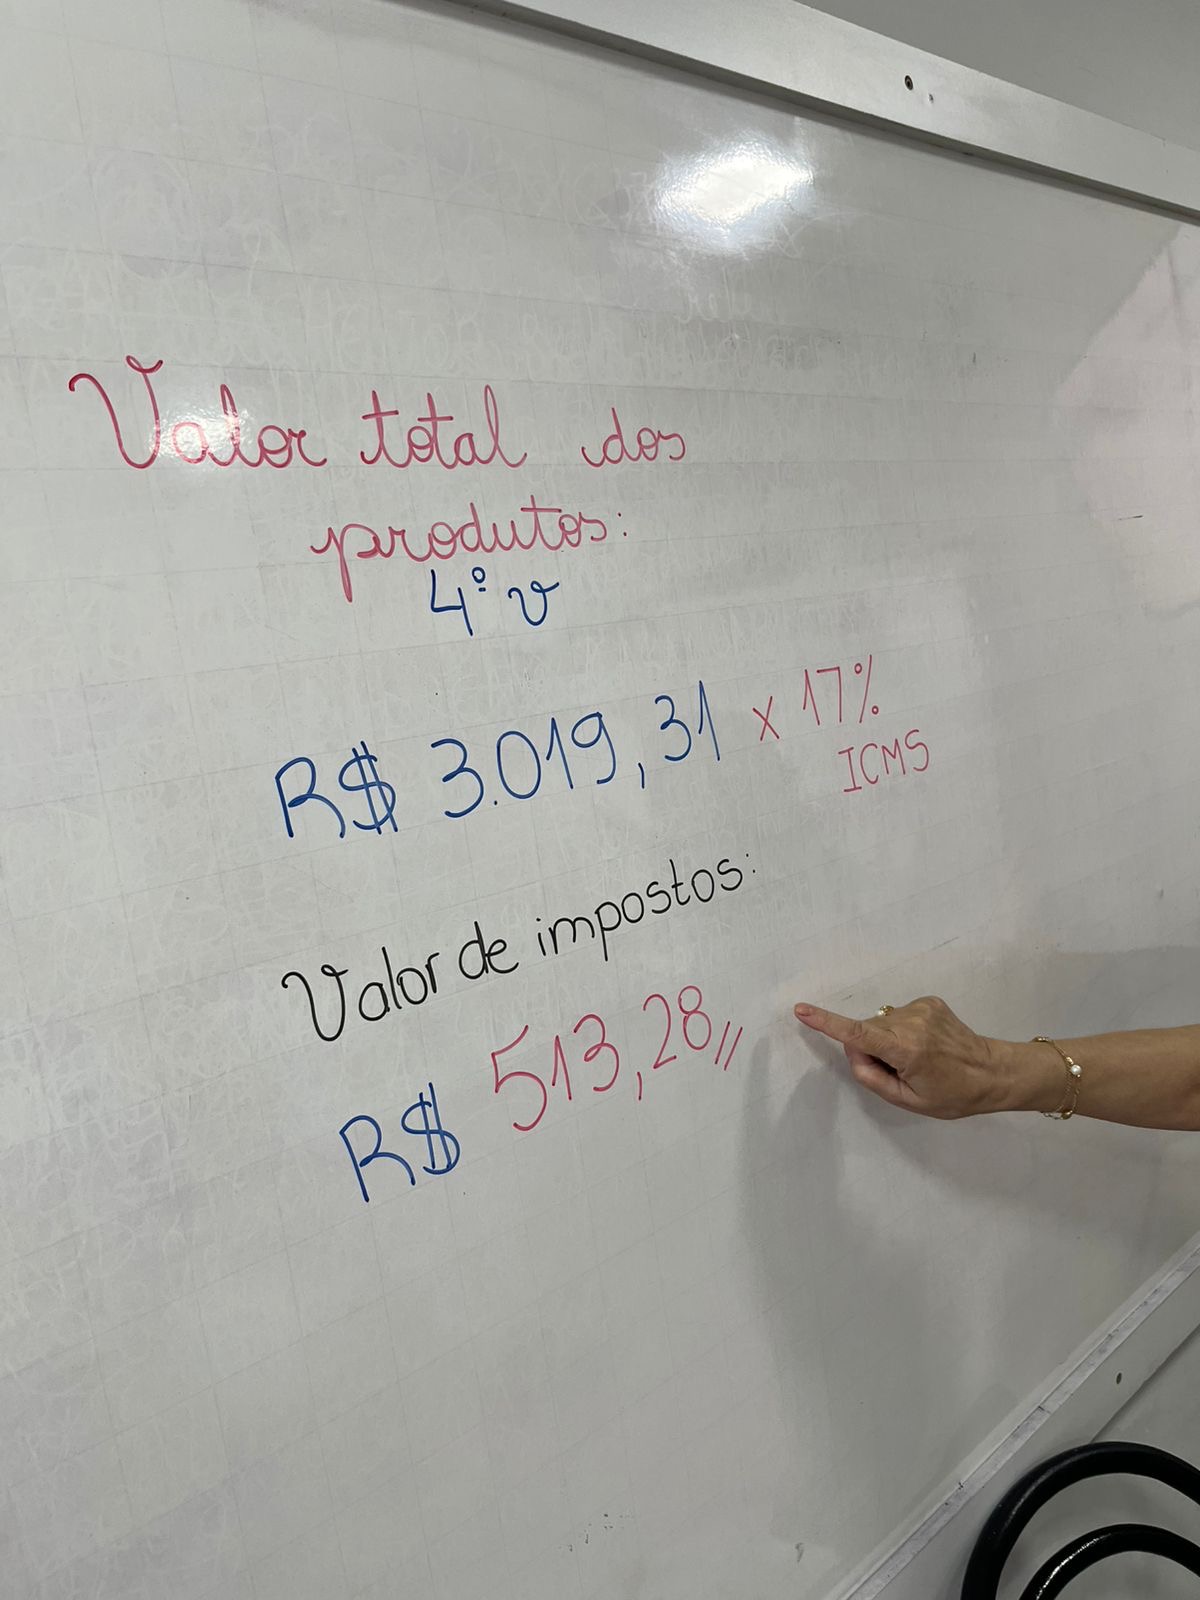 Valor total dos
produtos:
4º v
R$ 3.019,31 x 17%
ICMS
Valor de impostos:
R$ 513,28,,